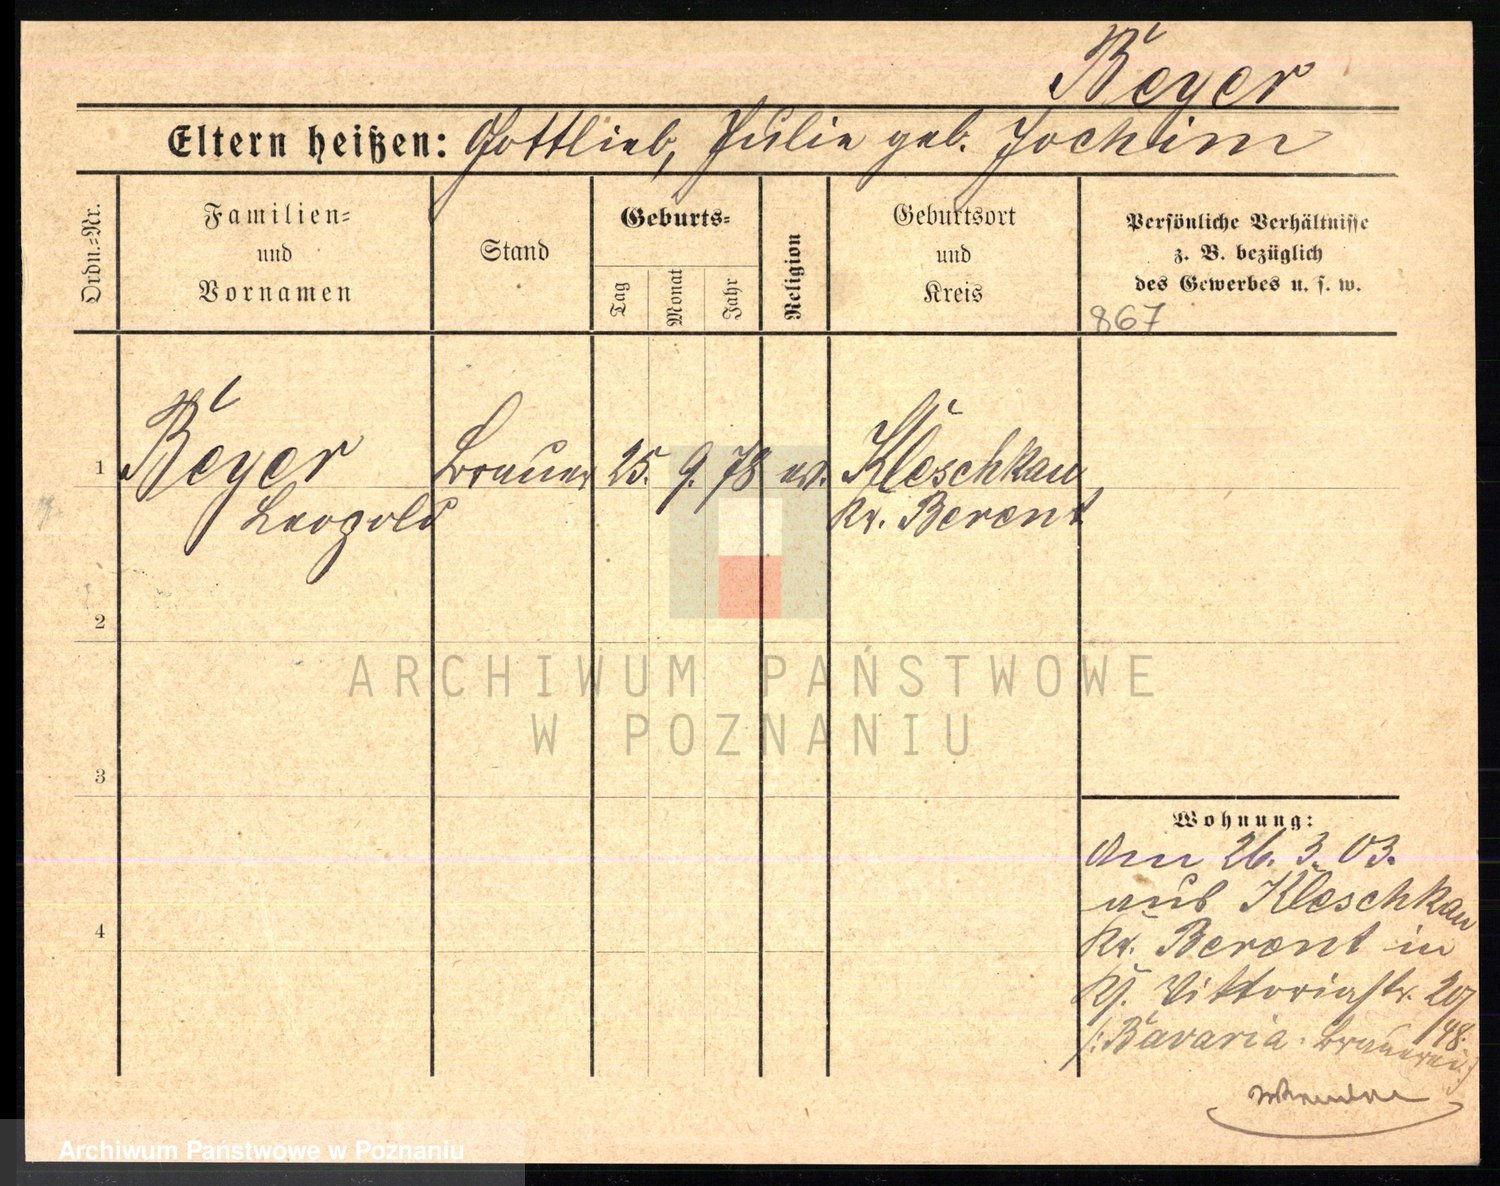 Beyer
Eltern heißen: Gottlieb, Julie geb. Jochim
Ordn.=Nr.
Familien=
und
Vornamen
Stand
Geburts=
Tag
Monat
Jahr
Religion
Geburtsort
und
Kreis
Persönliche Verhältnisse
z. B. bezüglich
des Gewerbes u. s. w.
867
1 Beyer Brauer 25. 9. 78 ev. Kleschkau
Leopold Kr. Berent
2
ARCHIWUM PAŃSTWOWE
W POZNANIU
3
Wohnung:
Am 26. 3. 03.
aus Kleschkau
4
Kr. Berent in
Viktoriastr. 20/
48.
/: Bavaria. Brauerei :/
Archiwum Państwowe w Poznaniu